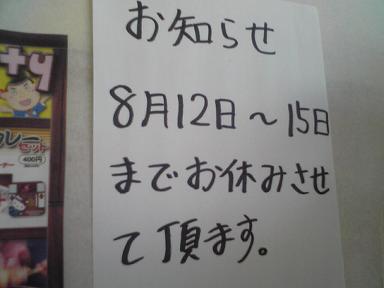 お知らせ
8月12日～15日
までお休みさせ
て頂ます。
ty
カレー
セット
400円